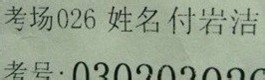 考场026 姓名 付岩洁
考号: